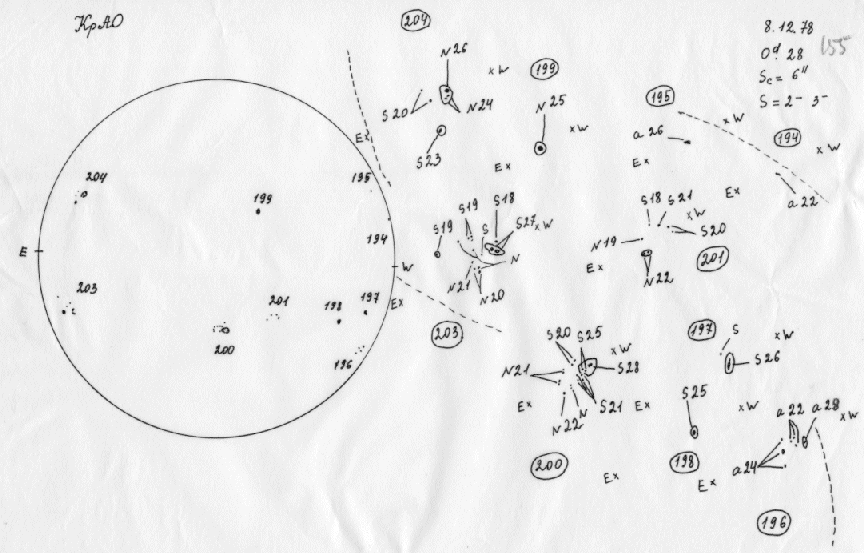 КрАО
8.12.78
155
0ᵈ. 28
Sc = 6"
S = 2⁻ 3⁻
204
N26
xW
S20
N24
Ex
S23
199
N25
xW
Ex
195
xW
a26
Ex
194
xW
Ex
a22
204
199
195
194
E
W
203
201
198
197
Ex
200
196
S19
S19
S18
S
S27
xW
N
N21
N20
203
S18
S21
xW
S20
N19
Ex
N22
201
S20
S25
xW
S28
N21
Ex
S21
N22
N
200
Ex
197
S
xW
S26
Ex
S25
xW
198
Ex
a22
a28
xW
a24
Ex
196